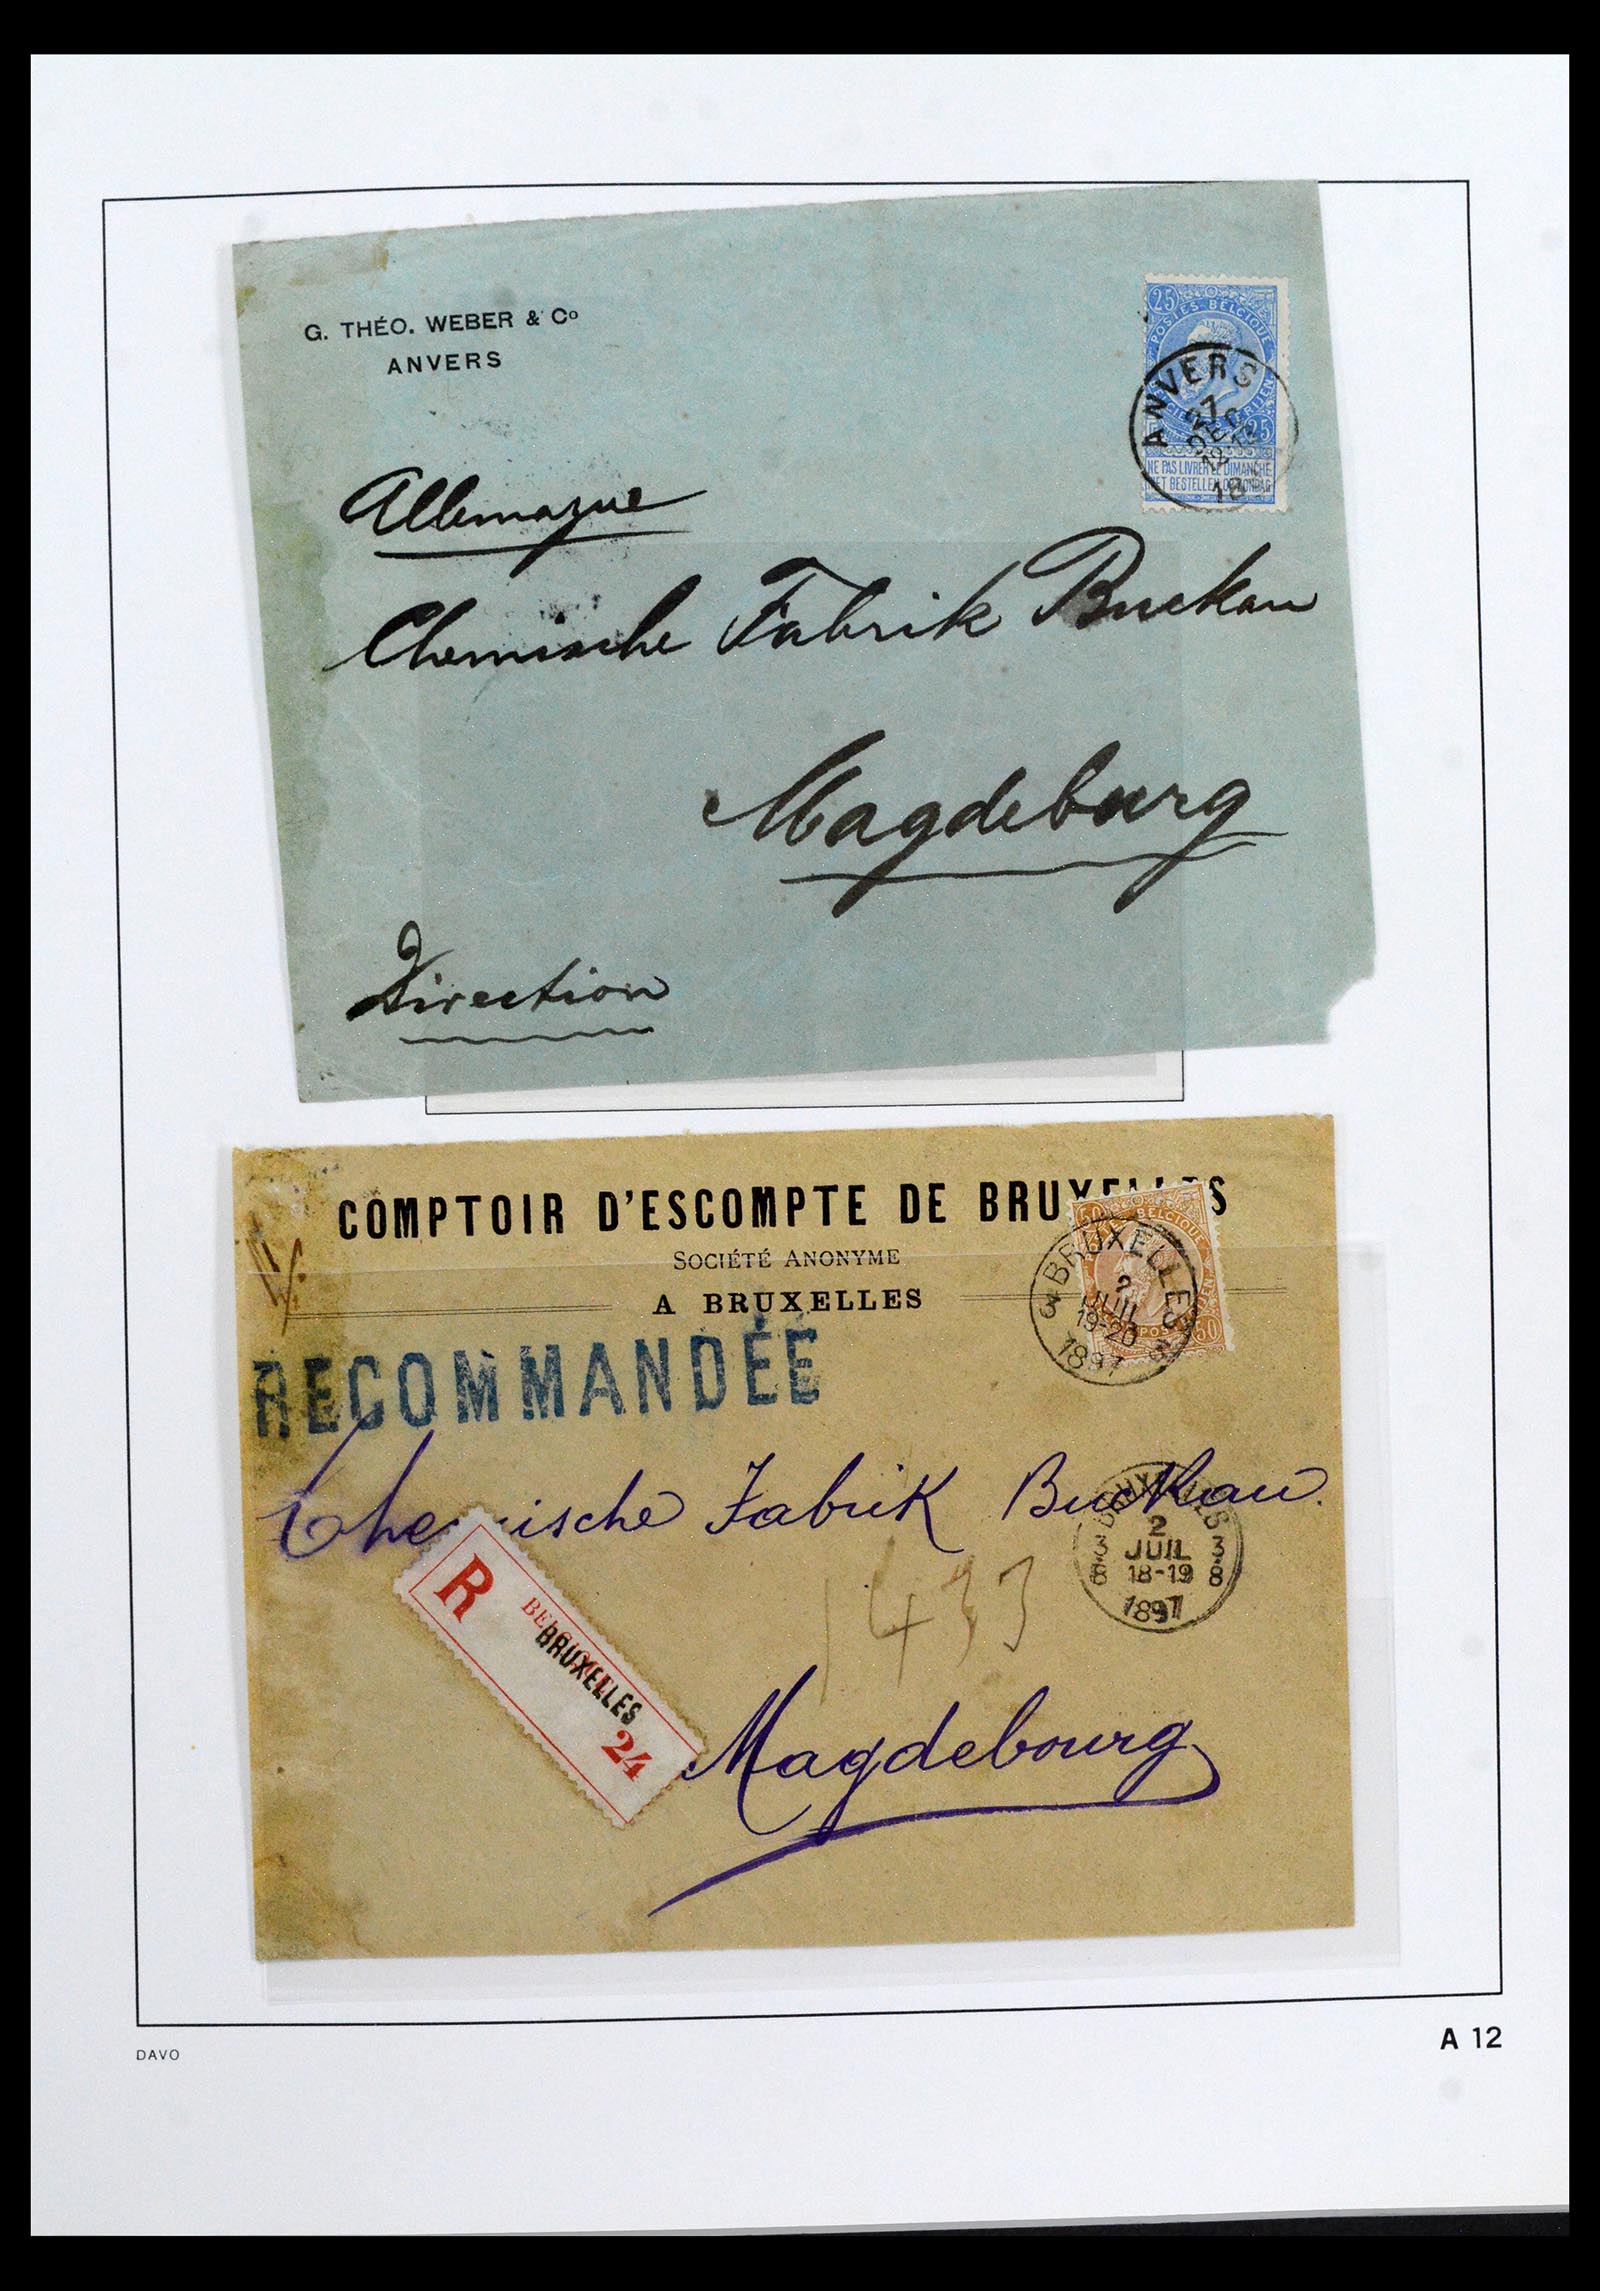 G. THÉO. WEBER & Co
ANVERS
25
POSTES BELGIQUE
25
NE PAS LIVRER LE DIMANCHE
NIET BESTELLEN OP ZONDAG
ANVERS
27
DEC
18
Allemagne
Chemische Fabrik Buckau
Magdeburg
Direction
COMPTOIR D'ESCOMPTE DE BRUXELLES
SOCIÉTÉ ANONYME
A BRUXELLES
50
BELGIQUE
50
3 BRUXELLES 3
2
JUIL
19-20
1897
RECOMMANDÉE
Chemische Fabrik Buckau.
BRUXELLES
3 2 3
8 JUIL 8
18-19
1897
R
BRUXELLES
24
1433
Magdebourg
DAVO
A 12